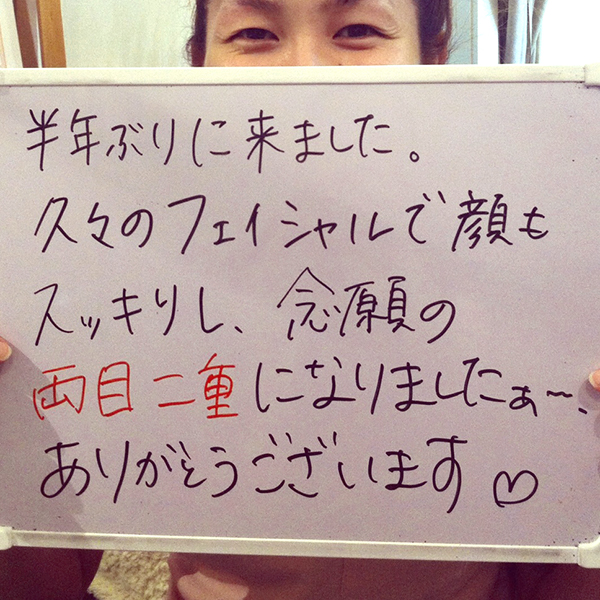 半年ぶりに来ました。
久々のフェイシャルで顔も
スッキリし、念願の
両目二重になりましたぁ〜、
ありがとうございます♡